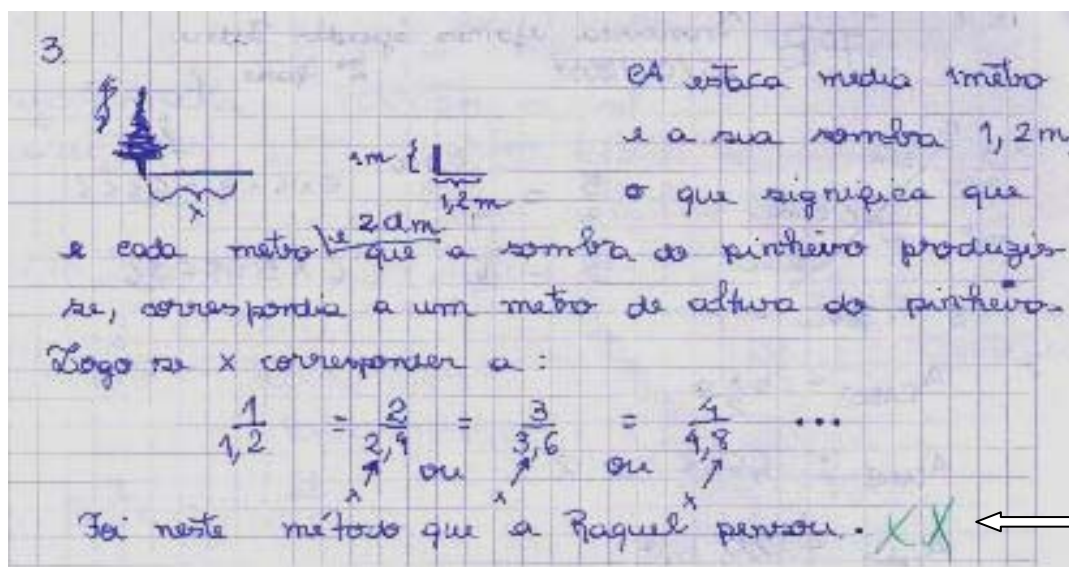 3
A estaca media 1metro
e a sua sombra 1,2m,
1m {
1,2m
x
o que significa que
e cada metro e 2dm que a sombra do pinheiro produzis-
se, correspondia a um metro de altura do pinheiro.
Logo se x corresponder a:
1/1,2 = 2/2,4 = 3/3,6 = 4/4,8 ...
x ou x ou x
Foi neste método que a Raquel pensou. XX